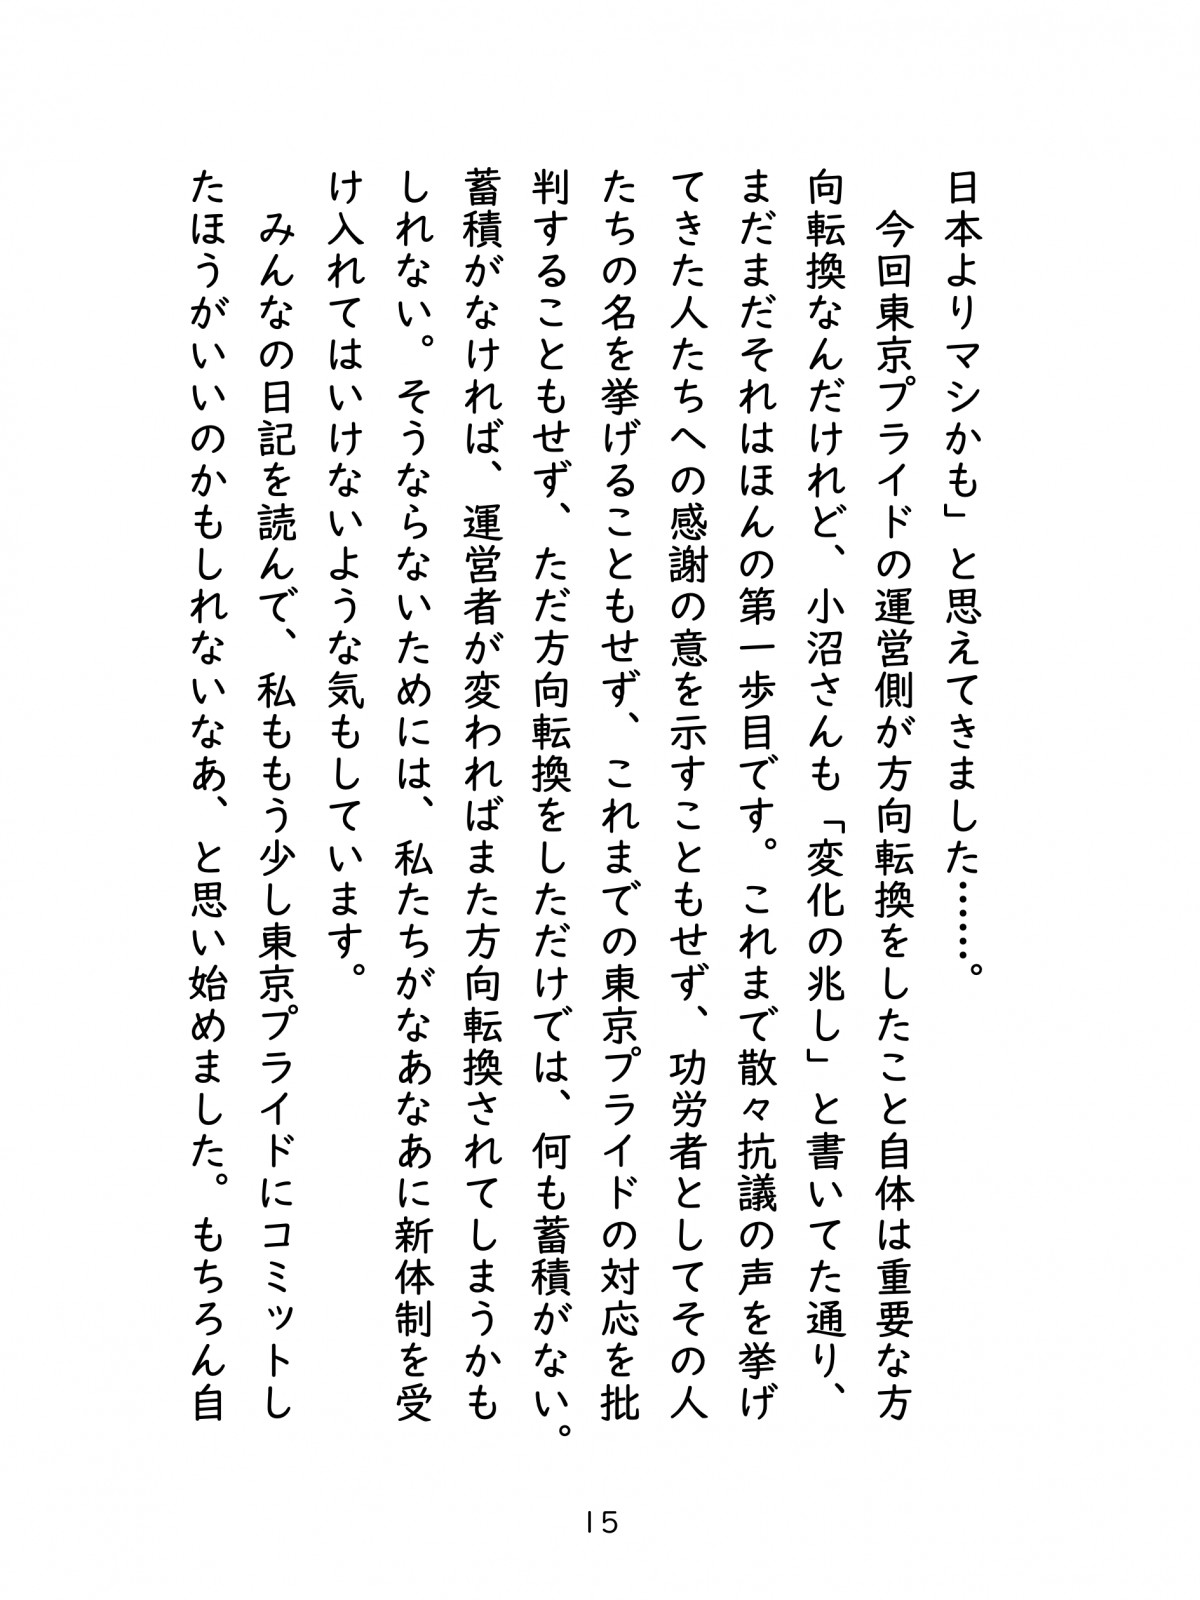 日本よりマシかも」と思えてきました……。
今回東京プライドの運営側が方向転換をしたこと自体は重要な方
向転換なんだけれど、小沼さんも「変化の兆し」と書いてた通り、
まだまだそれはほんの第一歩目です。これまで散々抗議の声を挙げ
てきた人たちへの感謝の意を示すこともせず、功労者としてその人
たちの名を挙げることもせず、これまでの東京プライドの対応を批
判することもせず、ただ方向転換をしただけでは、何も蓄積がない。
蓄積がなければ、運営者が変わればまた方向転換されてしまうかも
しれない。そうならないためには、私たちがなあなあに新体制を受
け入れてはいけないような気もしています。
みんなの日記を読んで、私ももう少し東京プライドにコミットし
たほうがいいのかもしれないなあ、と思い始めました。もちろん自
15